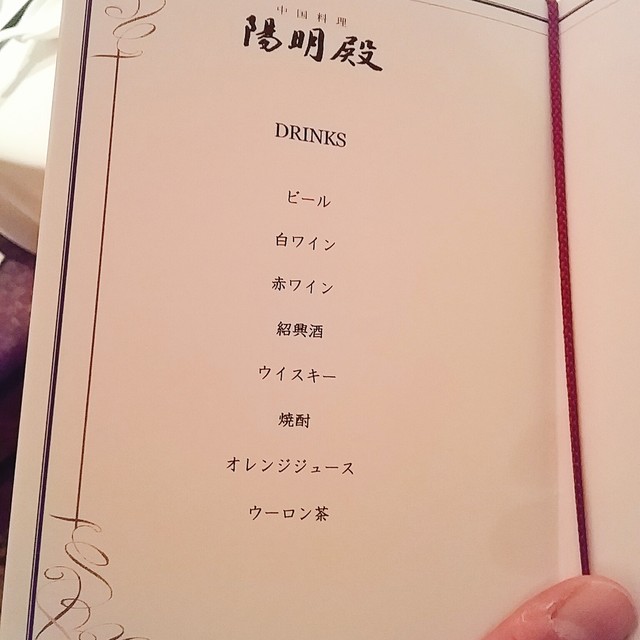 中国料理
陽明殿
DRINKS
ビール
白ワイン
赤ワイン
紹興酒
ウイスキー
焼酎
オレンジジュース
ウーロン茶